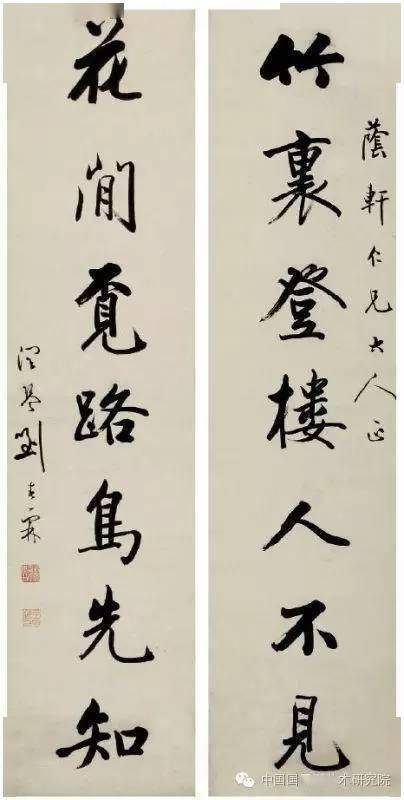 蔭軒仁兄大人正
竹裏登樓人不見
花間覓路鳥先知
潤琴劉春霖
中国国 术研究院